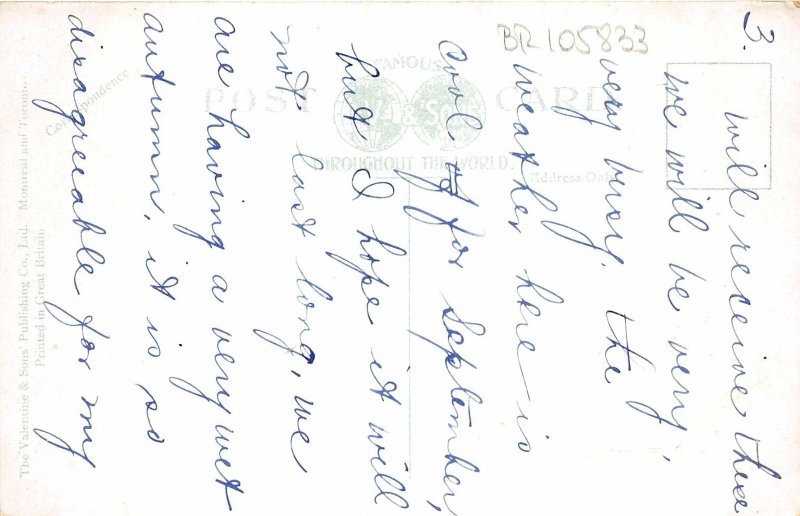 3.
will receive these
we will be very,
very busy. the
weather here is
cool for September,
but I hope it will
not last long, we
are having a very wet
autumn, it is so
disagreeable for my
BR105833
POST CARD
FAMOUS
THROUGHOUT THE WORLD.
Correspondence
Address Only
The Valentine & Sons' Publishing Co., Ltd. Montreal and Toronto.
Printed in Great Britain